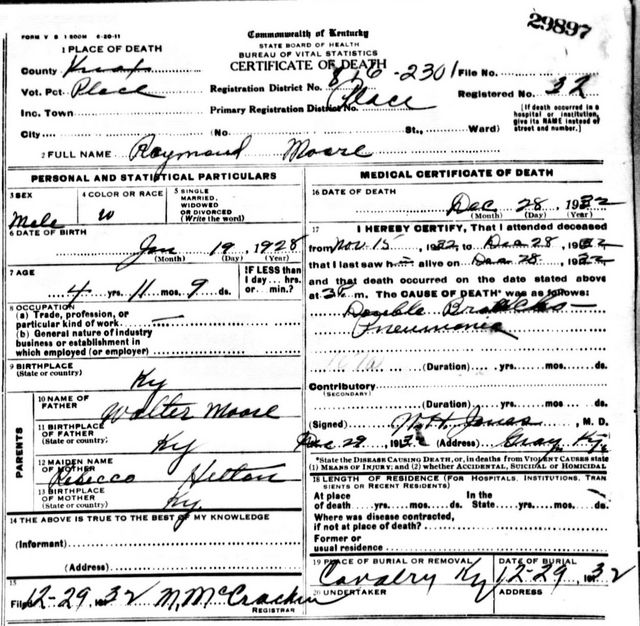 29897
FORM V S 1 500M 6-20-11
Commonwealth of Kentucky
STATE BOARD OF HEALTH
BUREAU OF VITAL STATISTICS
CERTIFICATE OF DEATH
1 PLACE OF DEATH
County Knox
Vot. Pct. Place
Inc. Town
City (No St., Ward)
Registration District No. 876-2301
Primary Registration District No. Place
File No.
Registered No. 32
[If death occurred in a
hospital or institution,
give its NAME instead of
street and number.]
2 FULL NAME Raymond Moore
PERSONAL AND STATISTICAL PARTICULARS
3 SEX
Male
4 COLOR OR RACE
w
5 SINGLE
MARRIED,
WIDOWED
OR DIVORCED
(Write the word)
6 DATE OF BIRTH
Jan 19, 1928
(Month) (Day) (Year)
7 AGE
4 yrs. 11 mos. 9 ds.
IF LESS than
1 day... hrs.
or... min.?
8 OCCUPATION
(a) Trade, profession, or
particular kind of work
(b) General nature of industry
business or establishment in
which employed (or employer)
9 BIRTHPLACE
(State or country)
Ky
PARENTS
10 NAME OF
FATHER
Walter Moore
11 BIRTHPLACE
OF FATHER
(State or country)
Ky
12 MAIDEN NAME
OF MOTHER
Rebecco Helton
13 BIRTHPLACE
OF MOTHER
(State or country)
Ky.
14 THE ABOVE IS TRUE TO THE BEST OF MY KNOWLEDGE
(Informant)
(Address)
15
Filed 12-29, 1932 M. McCracken
REGISTRAR
MEDICAL CERTIFICATE OF DEATH
16 DATE OF DEATH
Dec 28 1932
(Month) (Day) (Year)
17 I HEREBY CERTIFY, That I attended deceased
from Nov. 15, 1932 to Dec 28, 1932
that I last saw h alive on Dec 28, 1932
and that death occurred on the date stated above
at m. The CAUSE OF DEATH* was as follows:
Double Broncho
Pneumonia
(Duration) yrs. mos. ds.
Contributory
(SECONDARY)
(Duration) yrs. mos. ds.
(Signed) W.H. Jones, M. D.
Dec 29, 1932 (Address) Gray, Ky.
*State the DISEASE CAUSING DEATH, or, in deaths from VIOLENT CAUSES state
(1) MEANS OF INJURY; and (2) whether ACCIDENTAL, SUICIDAL or HOMICIDAL
18 LENGTH OF RESIDENCE (FOR HOSPITALS, INSTITUTIONS, TRAN
SIENTS OR RECENT RESIDENTS)
At place
of death yrs. mos. ds.
In the
State yrs. mos. ds.
Where was disease contracted,
if not at place of death?
Former or
usual residence
19 PLACE OF BURIAL OR REMOVAL
Cavalry Ky
DATE OF BURIAL
12-29, 1932
20 UNDERTAKER
ADDRESS